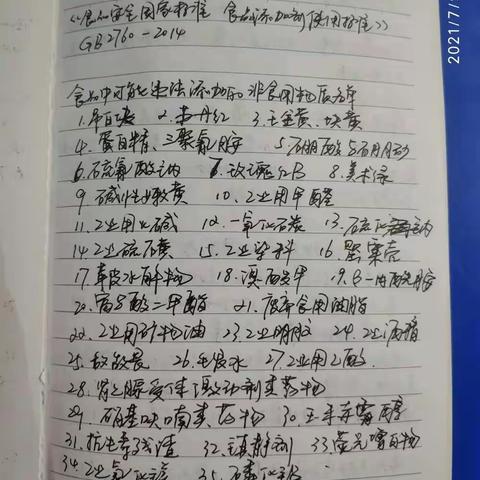 《食品安全国家标准 食品添加剂使用标准》
GB2760-2014
食品中可能违法添加的非食用物质名单
1.吊白块 2.苏丹红 3.王金黄、块黄
4.蛋白精、三聚氰胺 5.硼酸与硼砂
6.硫氰酸钠 7.玫瑰红B 8.美术绿
9.碱性嫩黄 10.工业用甲醛
11.工业用火碱 12.一氧化碳 13.硫化钠
14.工业硫磺 15.工业染料 16.罂粟壳
17.革皮水解物 18.溴酸钾 19.β-内酰胺
20.富马酸二甲酯 21.废弃食用油脂
22.工业用矿物油 23.工业明胶 24.工业酒精
25.敌敌畏 26.毛发水 27.工业用乙酸
28.肾上腺受体激动剂类药物
29.硝基呋喃类药物 30.玉米赤霉醇
31.抗生素残渣 32.镇静剂 33.荧光增白物
34.工业氯化镁 35.磷化铝
2021/7/